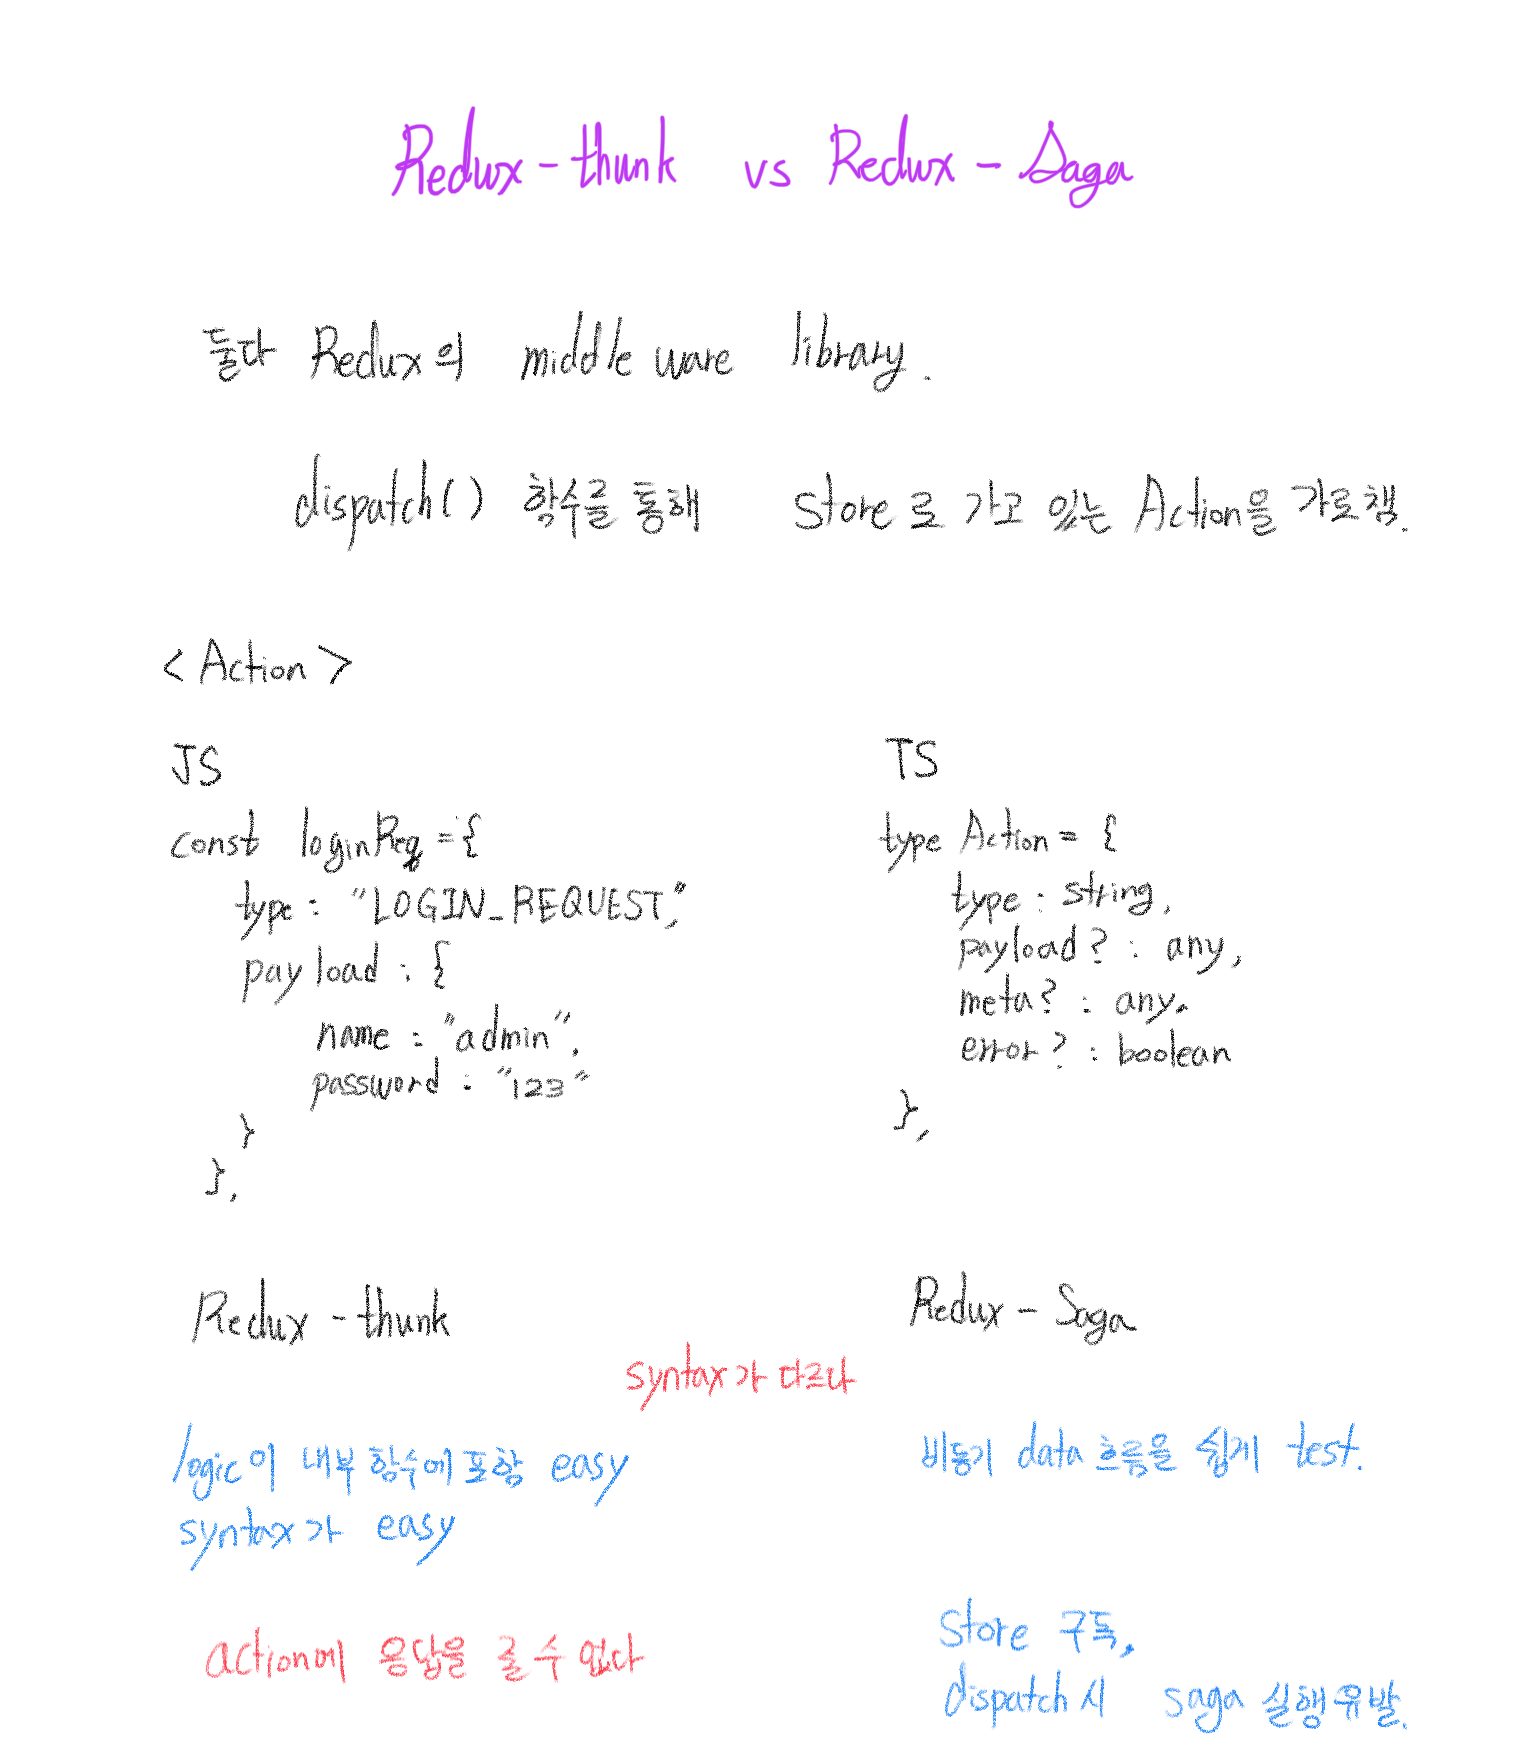 Redux - thunk vs Redux - Saga
둘다 Redux의 middle ware library.
dispatch() 함수를 통해 Store로 가고 있는 Action을 가로챔.
< Action >
JS
const loginReq = {
type : "LOGIN_REQUEST",
payload : {
name : "admin",
password : "123"
}
},
TS
type Action = {
type : string,
payload? : any,
meta? : any,
error? : boolean
},
Redux - thunk
Redux - Saga
syntax가 다르다
logic이 내부 함수에 포함 easy
syntax가 easy
action에 응답을 줄 수 없다
비동기 data 흐름을 쉽게 test.
Store 구독,
dispatch시 saga 실행 유발.